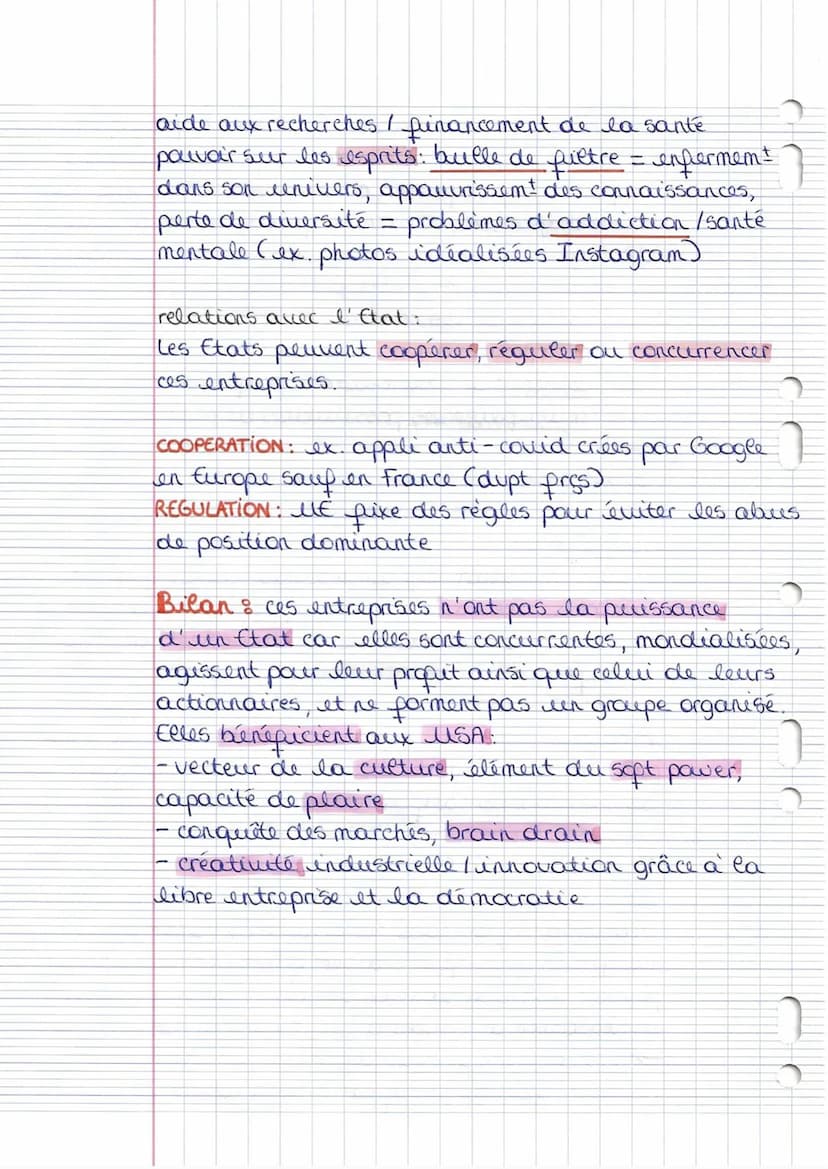 aide aux recherches / financement de la santé
pouvoir sur les esprits : bulle de filtre = enfermemt
dans son univers, appauvrissemt des connaissances,
perte de diversité = problèmes d'addiction / santé
mentale (ex. photos idéalisées Instagram)
relations avec l'Etat :
Les Etats peuvent coopérer, réguler ou concurrencer
ces entreprises.
COOPERATION : ex. appli anti-covid crées par Google
en Europe sauf en France (dvpt frçs)
REGULATION : UE fixe des règles pour éviter les abus
de position dominante
Bilan : ces entreprises n'ont pas la puissance
d'un Etat car elles sont concurrentes, mondialisées,
agissent pour leur profit ainsi que celui de leurs
actionnaires, et ne forment pas un groupe organisé.
Elles bénéficient aux USA :
- vecteur de la culture, élément du soft power,
capacité de plaire
- conquête des marchés, brain drain
- créativité industrielle / innovation grâce à la
libre entreprise et la démocratie